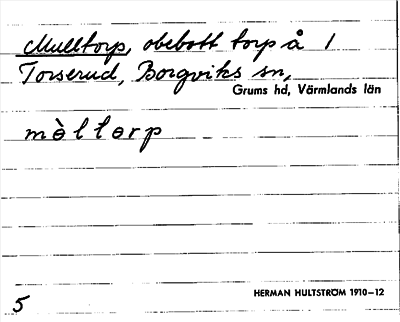 Mulltorp, obebott torp å 1
Torserud, Borgviks sn,
Grums hd, Värmlands län
mɵ̀ltɵrp
HERMAN HULTSTRÖM 1910—12
5